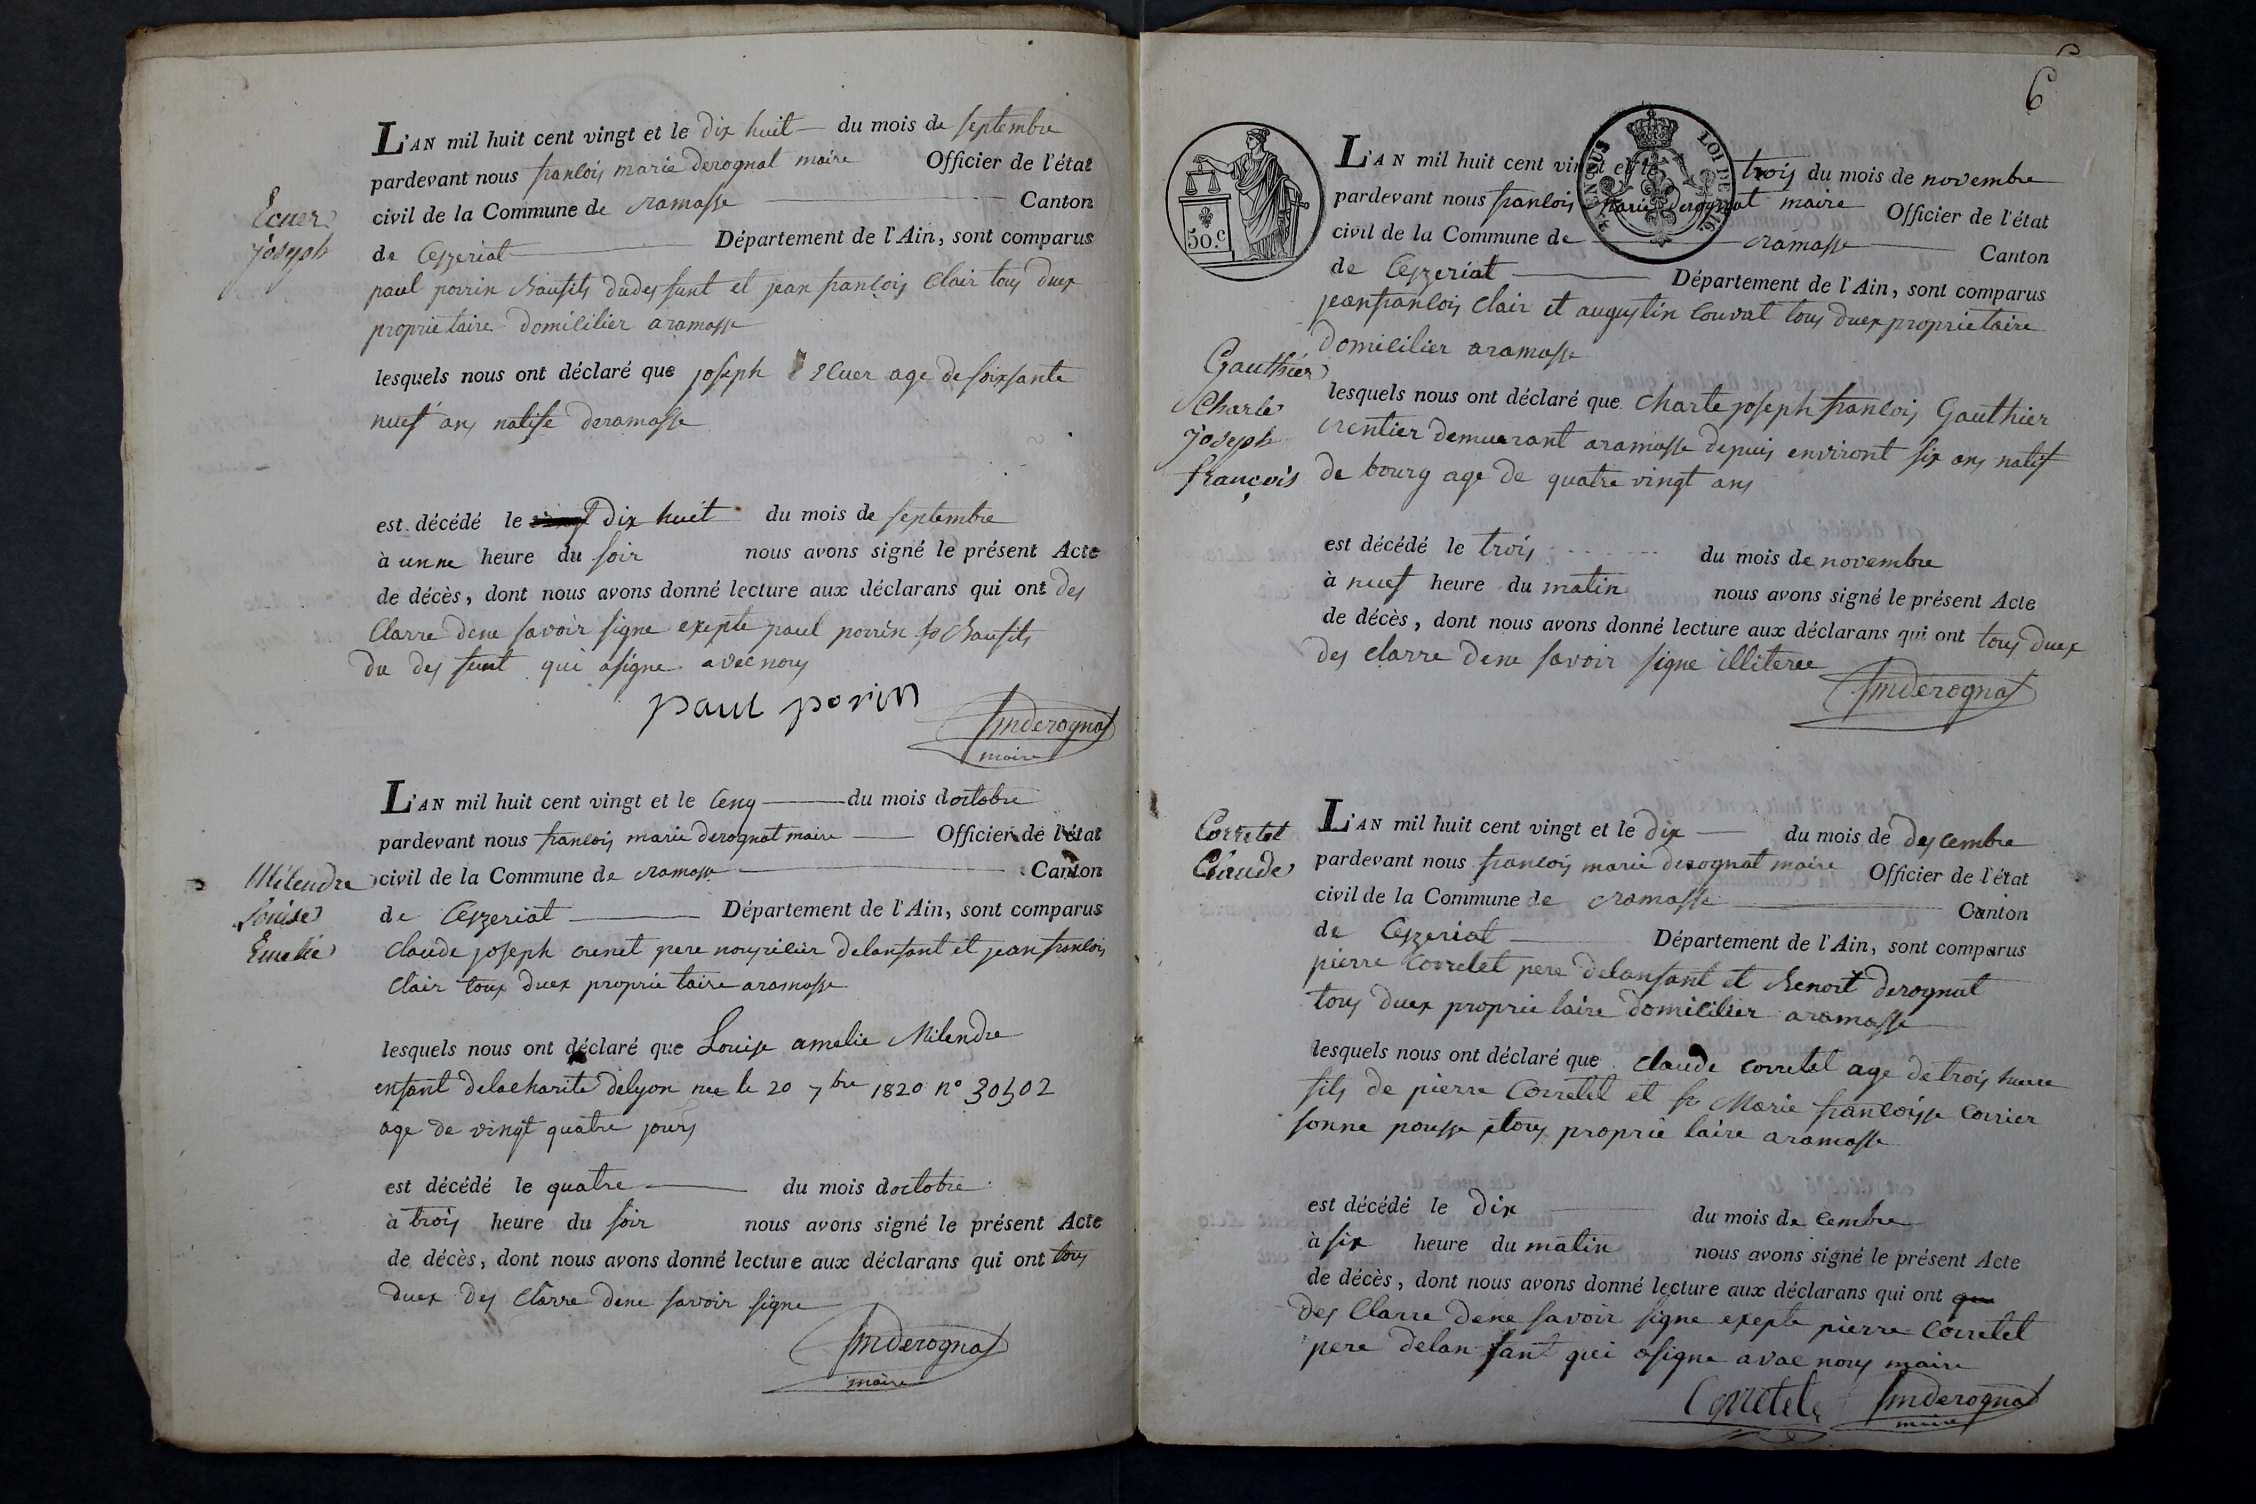 L'AN mil huit cent vingt et le dix huit du mois de septembre
pardevant nous francois marie derognat maire Officier de l'état
civil de la Commune de ramasse Canton
de Ceyzeriat Département de l'Ain, sont comparus
paul porrin baufils dudesfunt et jean francois Clair tous duex
proprietaire domicilier aramasse
Ecuer
Joseph
lesquels nous ont déclaré que joseph Ecuer age de soixsante
nuef ans natife deramasse
est décédé le dix huit du mois de septembre
à unne heure du soir nous avons signé le présent Acte
de décès, dont nous avons donné lecture aux déclarans qui ont des
Clarre dene savoir signe exepte paul porrin baufils
du des funt qui asigne avec nous
paul porin
fmderognat
maire
L'AN mil huit cent vingt et le Cenq du mois doctobre
pardevant nous francois marie derognat maire Officier de l'état
civil de la Commune de ramasse Canton
de Ceyzeriat Département de l'Ain, sont comparus
claude joseph crenet pere nouricier delanfant et jean francois
Clair toux duex proprietaire aramasse
Milendre
Louise
Emelie
lesquels nous ont déclaré que Louise amelie Milendre
enfant delacharite delyon nee le 20 7bre 1820 n° 30502
age de vingt quatre jours
est décédé le quatre du mois doctobre
à trois heure du soir nous avons signé le présent Acte
de décès, dont nous avons donné lecture aux déclarans qui ont tous
duex des Clarre dene savoir signe
fmderognat
maire
6
50.c
LOI DE 1816
L'AN mil huit cent vingt et le trois du mois de novembre
pardevant nous francois marie derognat maire Officier de l'état
civil de la Commune de ramasse Canton
de Ceyzeriat Département de l'Ain, sont comparus
jeanfrancois Clair et augustin Couvat tous duex proprietaire
domicilier aramasse
Gauthier
Charle
Joseph
françois
lesquels nous ont déclaré que Charle joseph francois Gauthier
rentier demeurant aramasse depuis environt six ans natif
de bourg age de quatre vingt ans
est décédé le trois du mois de novembre
à nuef heure du matin nous avons signé le présent Acte
de décès, dont nous avons donné lecture aux déclarans qui ont tous duex
des clarre dene savoir signe illiteree
fmderognat
L'AN mil huit cent vingt et le dix du mois de des cembre
pardevant nous francois marie derognat maire Officier de l'état
civil de la Commune de ramasse Canton
de Ceyzeriat Département de l'Ain, sont comparus
pierre Corretet pere delanfant et benoit derognat
tous duex proprietaire domicilier aramasse
Corretet
Claude
lesquels nous ont déclaré que claude corretet age de trois heure
fils de pierre Corretet et fe Marie francoisse Corrier
sonne pousse tous proprietaire aramasse
est décédé le dix du mois de cembre
à six heure du matin nous avons signé le présent Acte
de décès, dont nous avons donné lecture aux déclarans qui ont
des Clarre dene savoir signe exepte pierre Corretet
pere delanfant qui asigne avae nous maire
Corretet fmderognat
maire